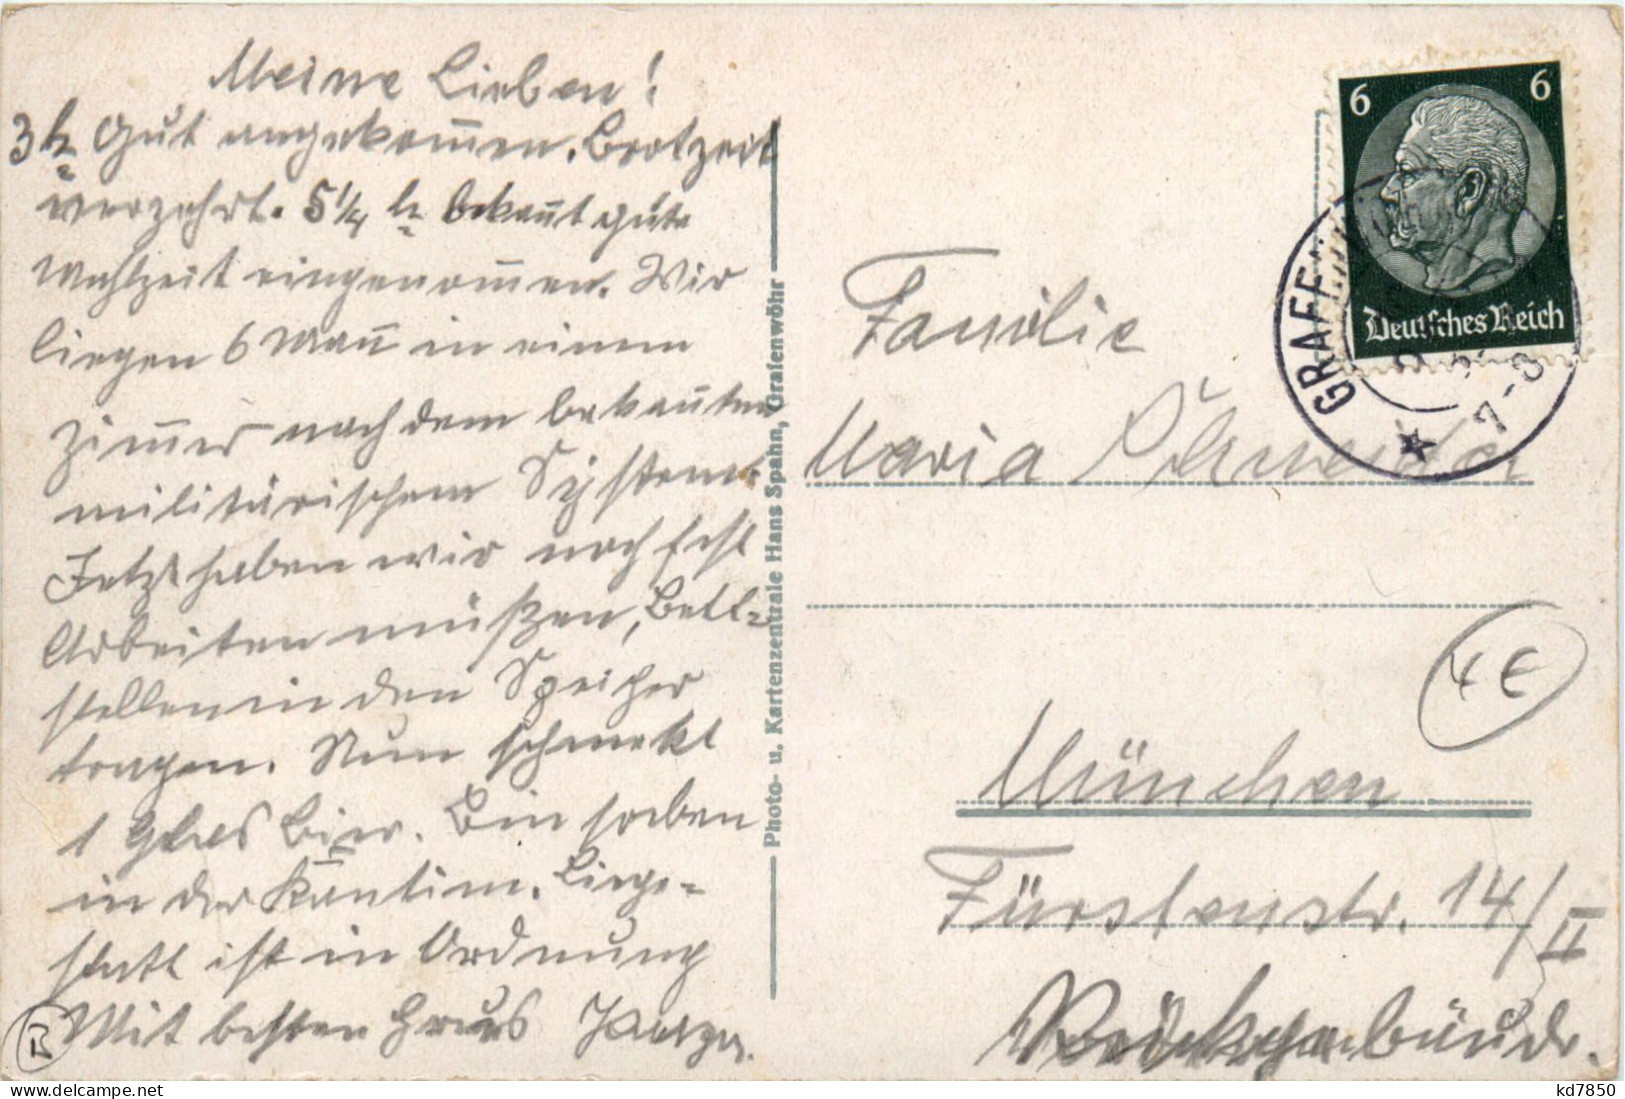 Meine Lieben!
3 h Gut angekom̅en. Brotzeit
verzehrt. 5 1/4 h bekan̅t gute
Mahlzeit eingenom̅en. Wir
liegen 6 Man̅ in einem
Zim̅er nach dem bekan̅ten
militärischem System.
Jetzt haben wir noch fest
Arbeiten müßen, Bett=
stellen in den Speicher
tragen. Nun schmekt
1 Glas Bier. Bin soeben
in der Kantine. Liege=
statt ist in Ordnung
Mit besten Grus
B
Photo- u. Kartenzentrale Hans Spahn, Grafenwöhr
6 6
Deutsches Reich
GRAFEN
7-8
Familie
Maria Schneider
4 €
München
Fürstenstr. 14/II
Rückgebäude.
kd7850